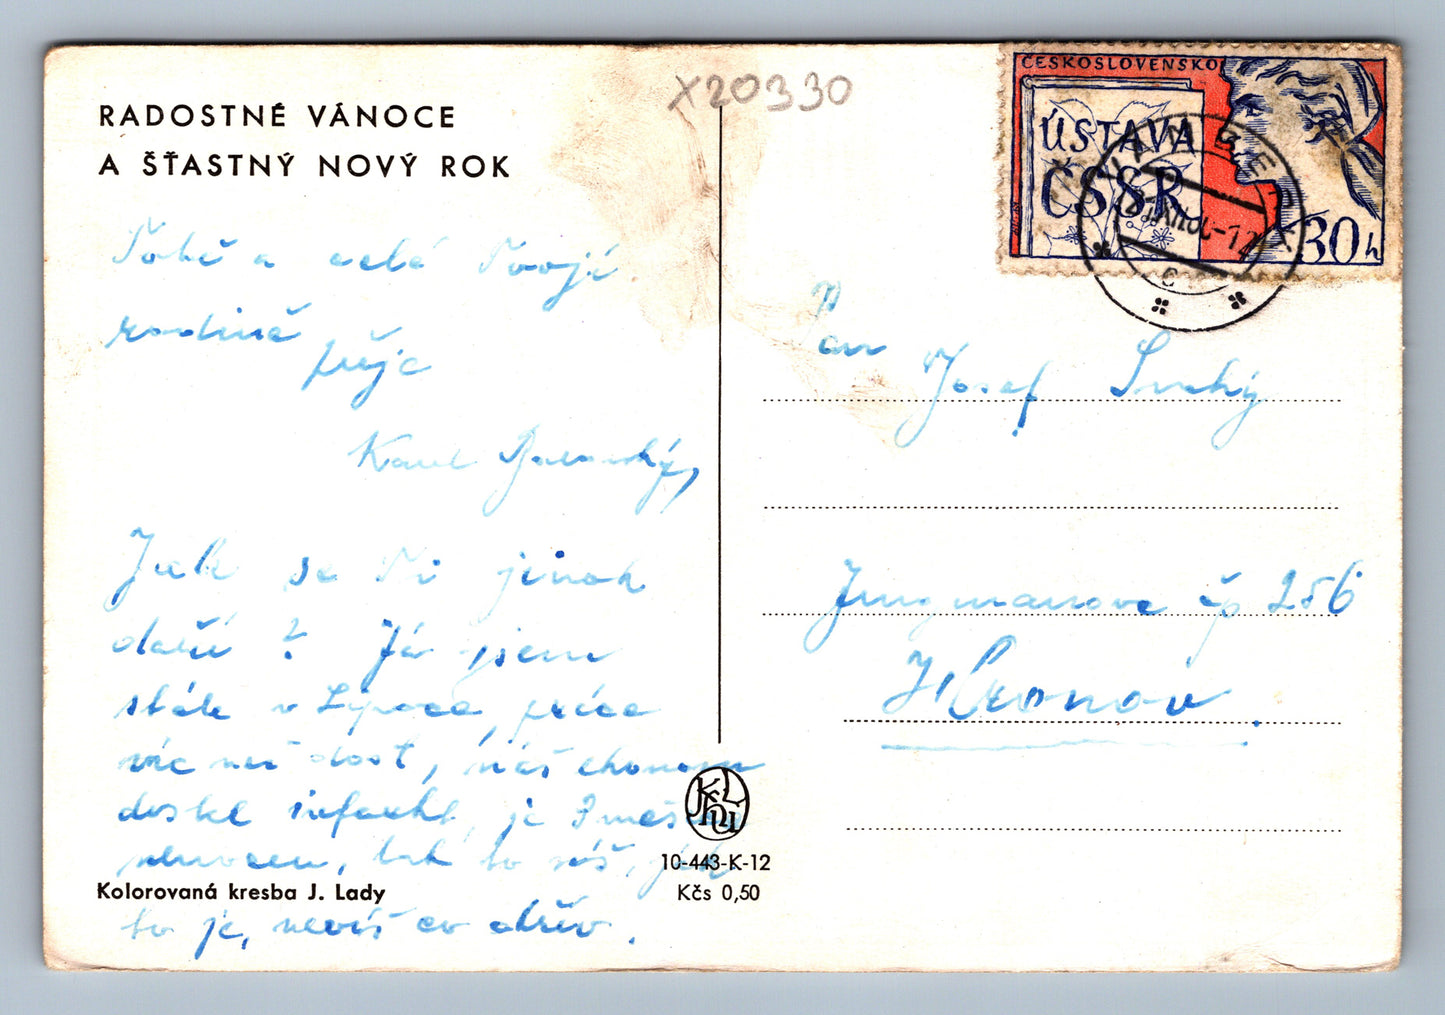 X20330
RADOSTNÉ VÁNOCE
A ŠŤASTNÝ NOVÝ ROK
ČESKOSLOVENSKO
ÚSTAVA
ČSSR
30 h
Tobě a celé Tvojí
rodině
přeje
Karel
Pan
Josef Suchý
Jak se Ti jinak
daří? Já jsem
stále v Lípovce, práce
víc než dost, náš ekonom
dostal infarkt, je 2 měs.
nemocen, tak to víš, jak
to je, nevíš co dřív.
Jungmanova čp 256
Hronov.
10-443-K-12
Kčs 0,50
Kolorovaná kresba J. Lady